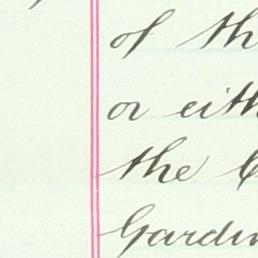 of th
or eith
the C
Gardin